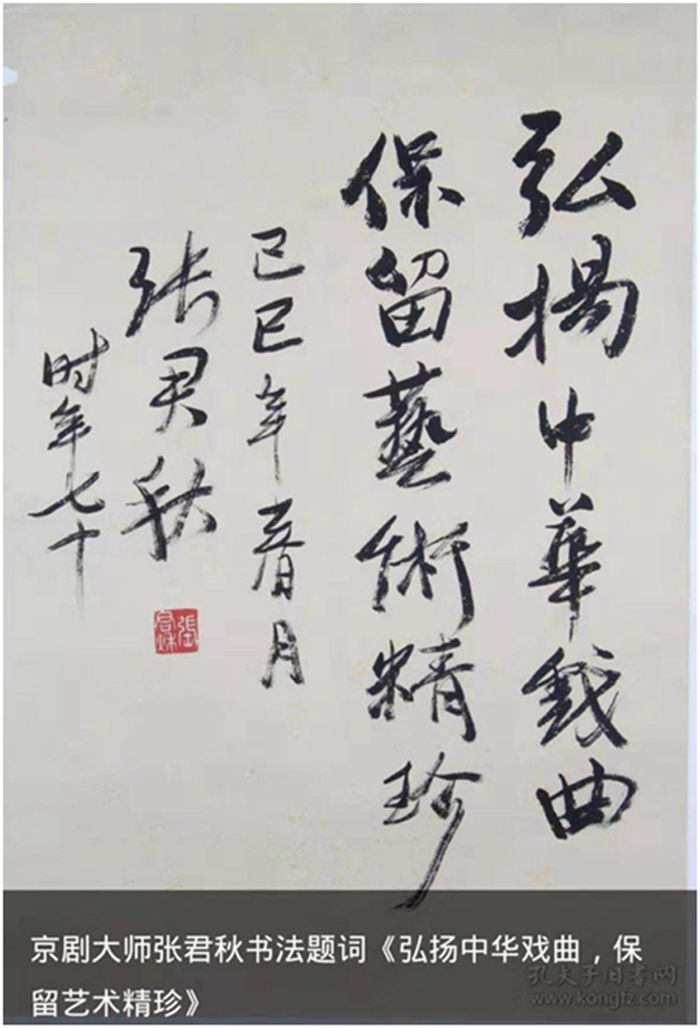 弘揚中華戲曲
保留藝術精珍
己巳年春月
张君秋
时年七十
張君秋
京剧大师张君秋书法题词《弘扬中华戏曲，保
留艺术精珍》
孔夫子旧书网
www.kongfz.com